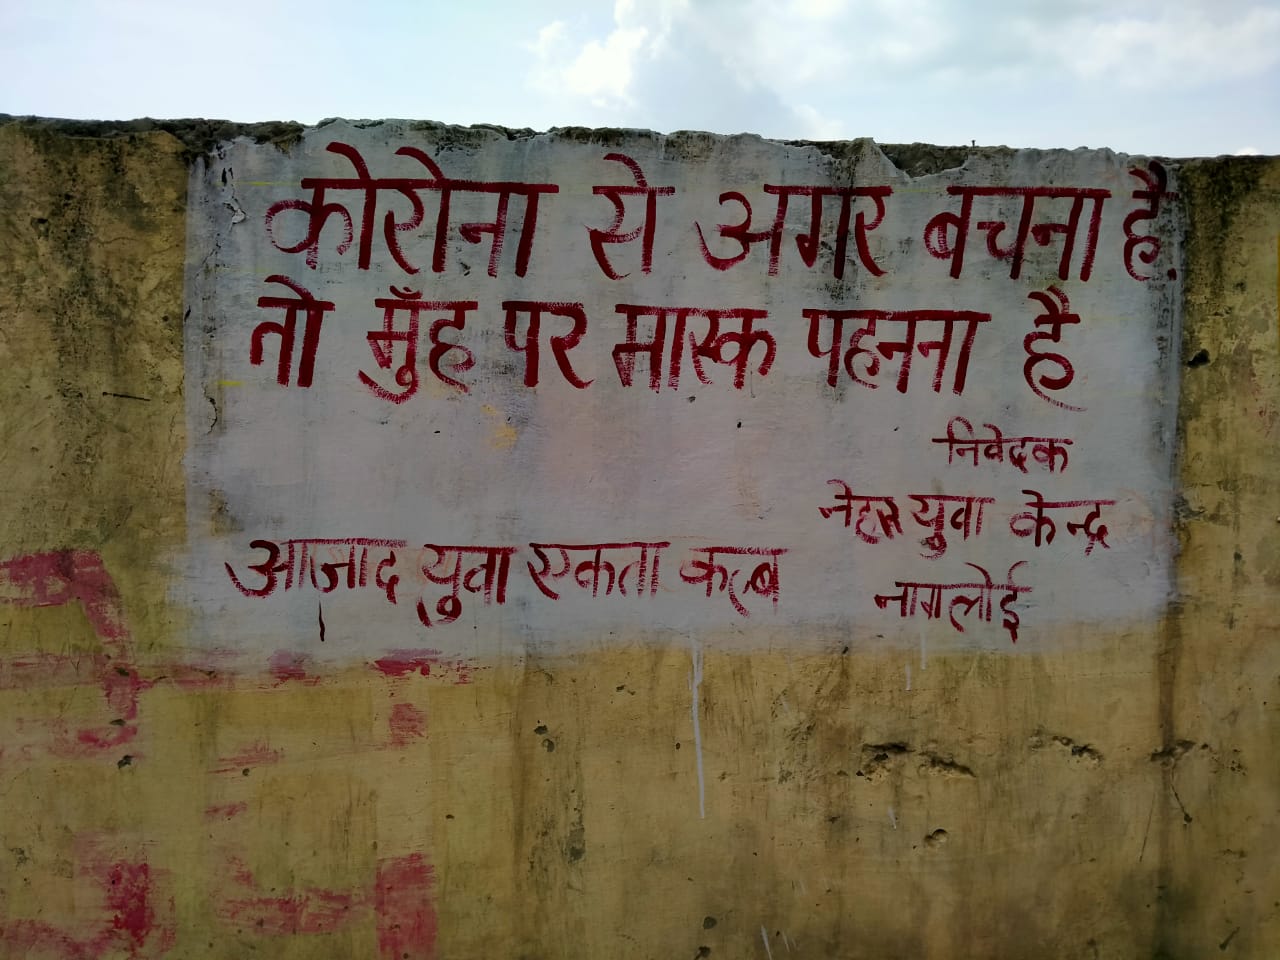 कोरोना से अगर बचना है.
तो मुँह पर मास्क पहनना है
निवेदक
नेहरू युवा केन्द्र
आज़ाद युवा एकता कल्ब
नागलोई